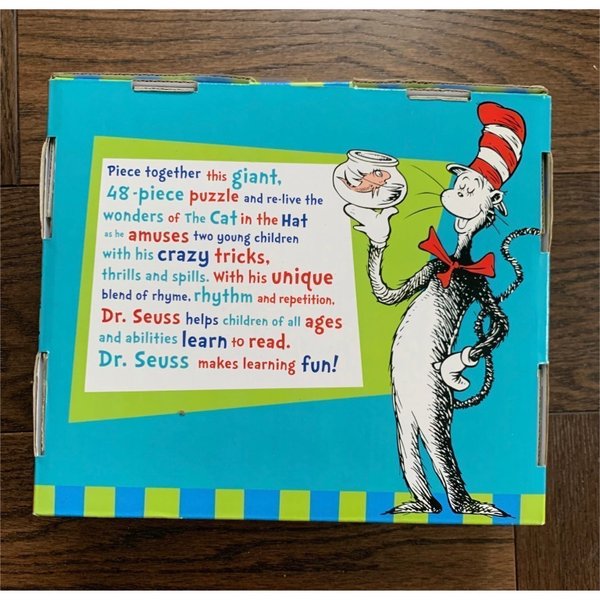 Piece together this giant,
48-piece puzzle and re-live the
wonders of The Cat in the Hat
as he amuses two young children
with his crazy tricks,
thrills and spills. With his unique
blend of rhyme, rhythm and repetition,
Dr. Seuss helps children of all ages
and abilities learn to read.
Dr. Seuss makes learning fun!